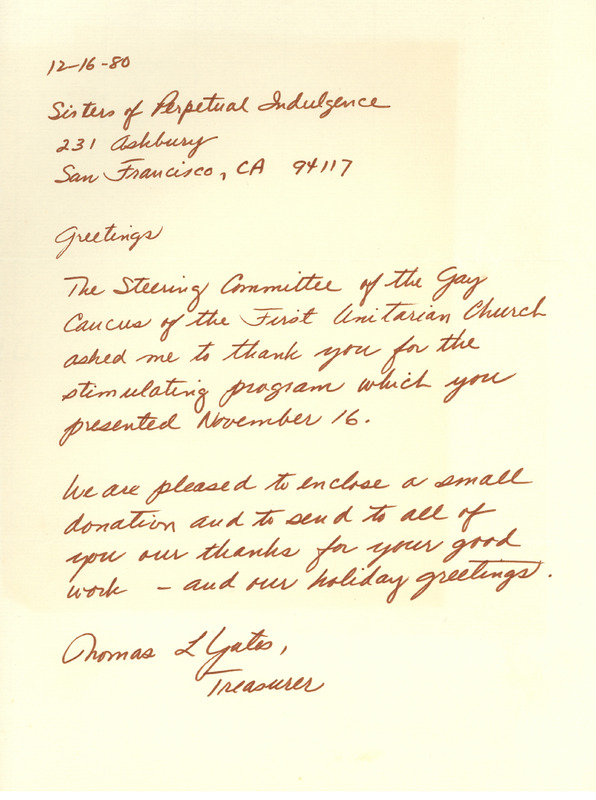 12-16-80
Sisters of Perpetual Indulgence
231 Ashbury
San Francisco, CA 94117
Greetings
The Steering Committee of the Gay
Caucus of the First Unitarian Church
asked me to thank you for the
stimulating program which you
presented November 16.
We are pleased to enclose a small
donation and to send to all of
you our thanks for your good
work - and our holiday greetings.
Thomas L Yates,
Treasurer